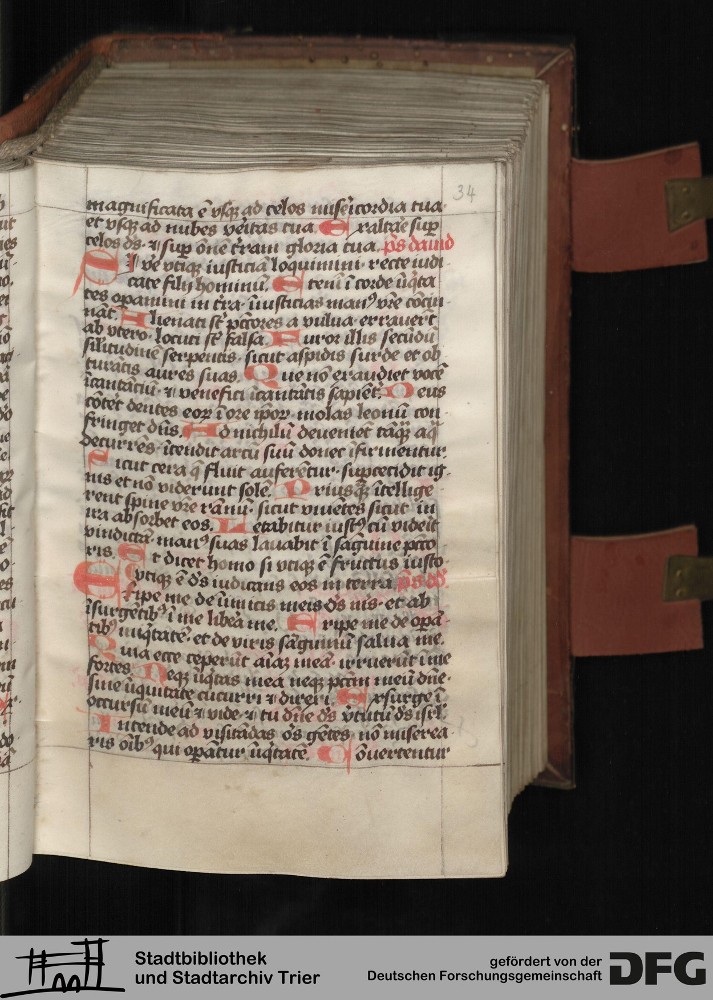 34
magnificata ē vsqꝫ ad celos misericordia tua·
et vsqꝫ ad nubes veritas tua. Exaltare sup̄
celos ds̄· ⁊ sup̄ om̄e t̄ram gloria tua. ps̄ dauid
Si ve vtiqꝫ iusticiā loquimini· recte iudi
cate filij hominū. Eteni ī corde īiq̄ta
tes opamini in t̄ra· īiusticias man⁹ vr̄e cōcin
nāt. Alienati st̄ pc̄tores a vulua· erraūert
ab vtero· locuti st̄ falsa. Furor illis secūdū
silitudinē serpentis· sicut aspidis surde et ob
turātis aures suas. Que nō exaudiet vocē
īcantāciū· ⁊ venefici īcantātis sapiēt. Deus
cōtet dentes eoꝝ ī ore ip̄oꝝ· molas leonū con
fringet dn̄s. Ad nichilū deuenient tāqꝫ aq̄
decurrēs· ītendit arcū suū donec īfirmentur
Sicut cera q̄ fluit auferētur· supcecidit ig
nis et nō viderunt solē. Priusqꝫ ītellige
rent spine vr̄e rānū· sicut viuētes sicut in
ira absorbet eos. Letabitur iust⁹ cū videīt
vindictā· man⁹ suas lauabit ī sāgwine pc̄to
ris. Et dicet homo si vtiqꝫ ē fructus iusto
vtiqꝫ ē ds̄ iudicans eos in terra. ps̄ dd̄
Eripe me de īimicis meis ds̄ ms̄· et ab
īsurgētib⁹ ī me libera me. Eripe me de opā
tib⁹ īiq̄tatē· et de viris sāguinū salua me.
Quia ecce ceperūt aīaꝫ meā· irruerūt ī me
fortes. Neqꝫ īiq̄tas mea neqꝫ pcc̄m meū dn̄e·
sine īiquitate cucurri ⁊ direxi. Exsurge ī
occursū meū ⁊ vide· ⁊ tu dn̄e ds̄ v̄tutū ds̄ isrl̄.
Intende ad visitādas om̄s gētes· nō miserea
ris oīb⁹ qui opātur īiq̄tatē. Cōuertentur
Stadtbibliothek
und Stadtarchiv Trier
gefördert von der
Deutschen Forschungsgemeinschaft
DFG